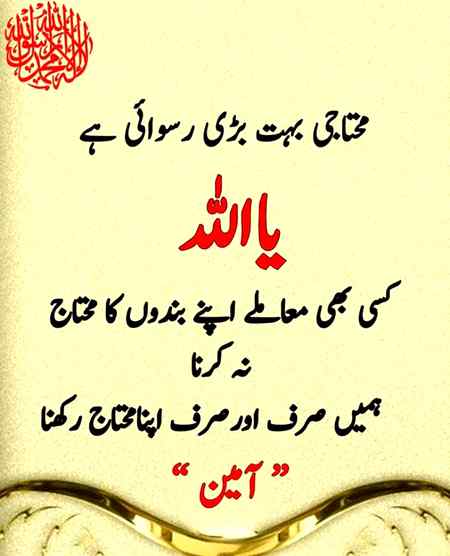 لا الہ الا اللہ محمد رسول اللہ
محتاجی بہت بڑی رسوائی ہے
یا اللہ
کسی بھی معاملے اپنے بندوں کا محتاج
نہ کرنا
ہمیں صرف اور صرف اپنا محتاج رکھنا
” آمین “